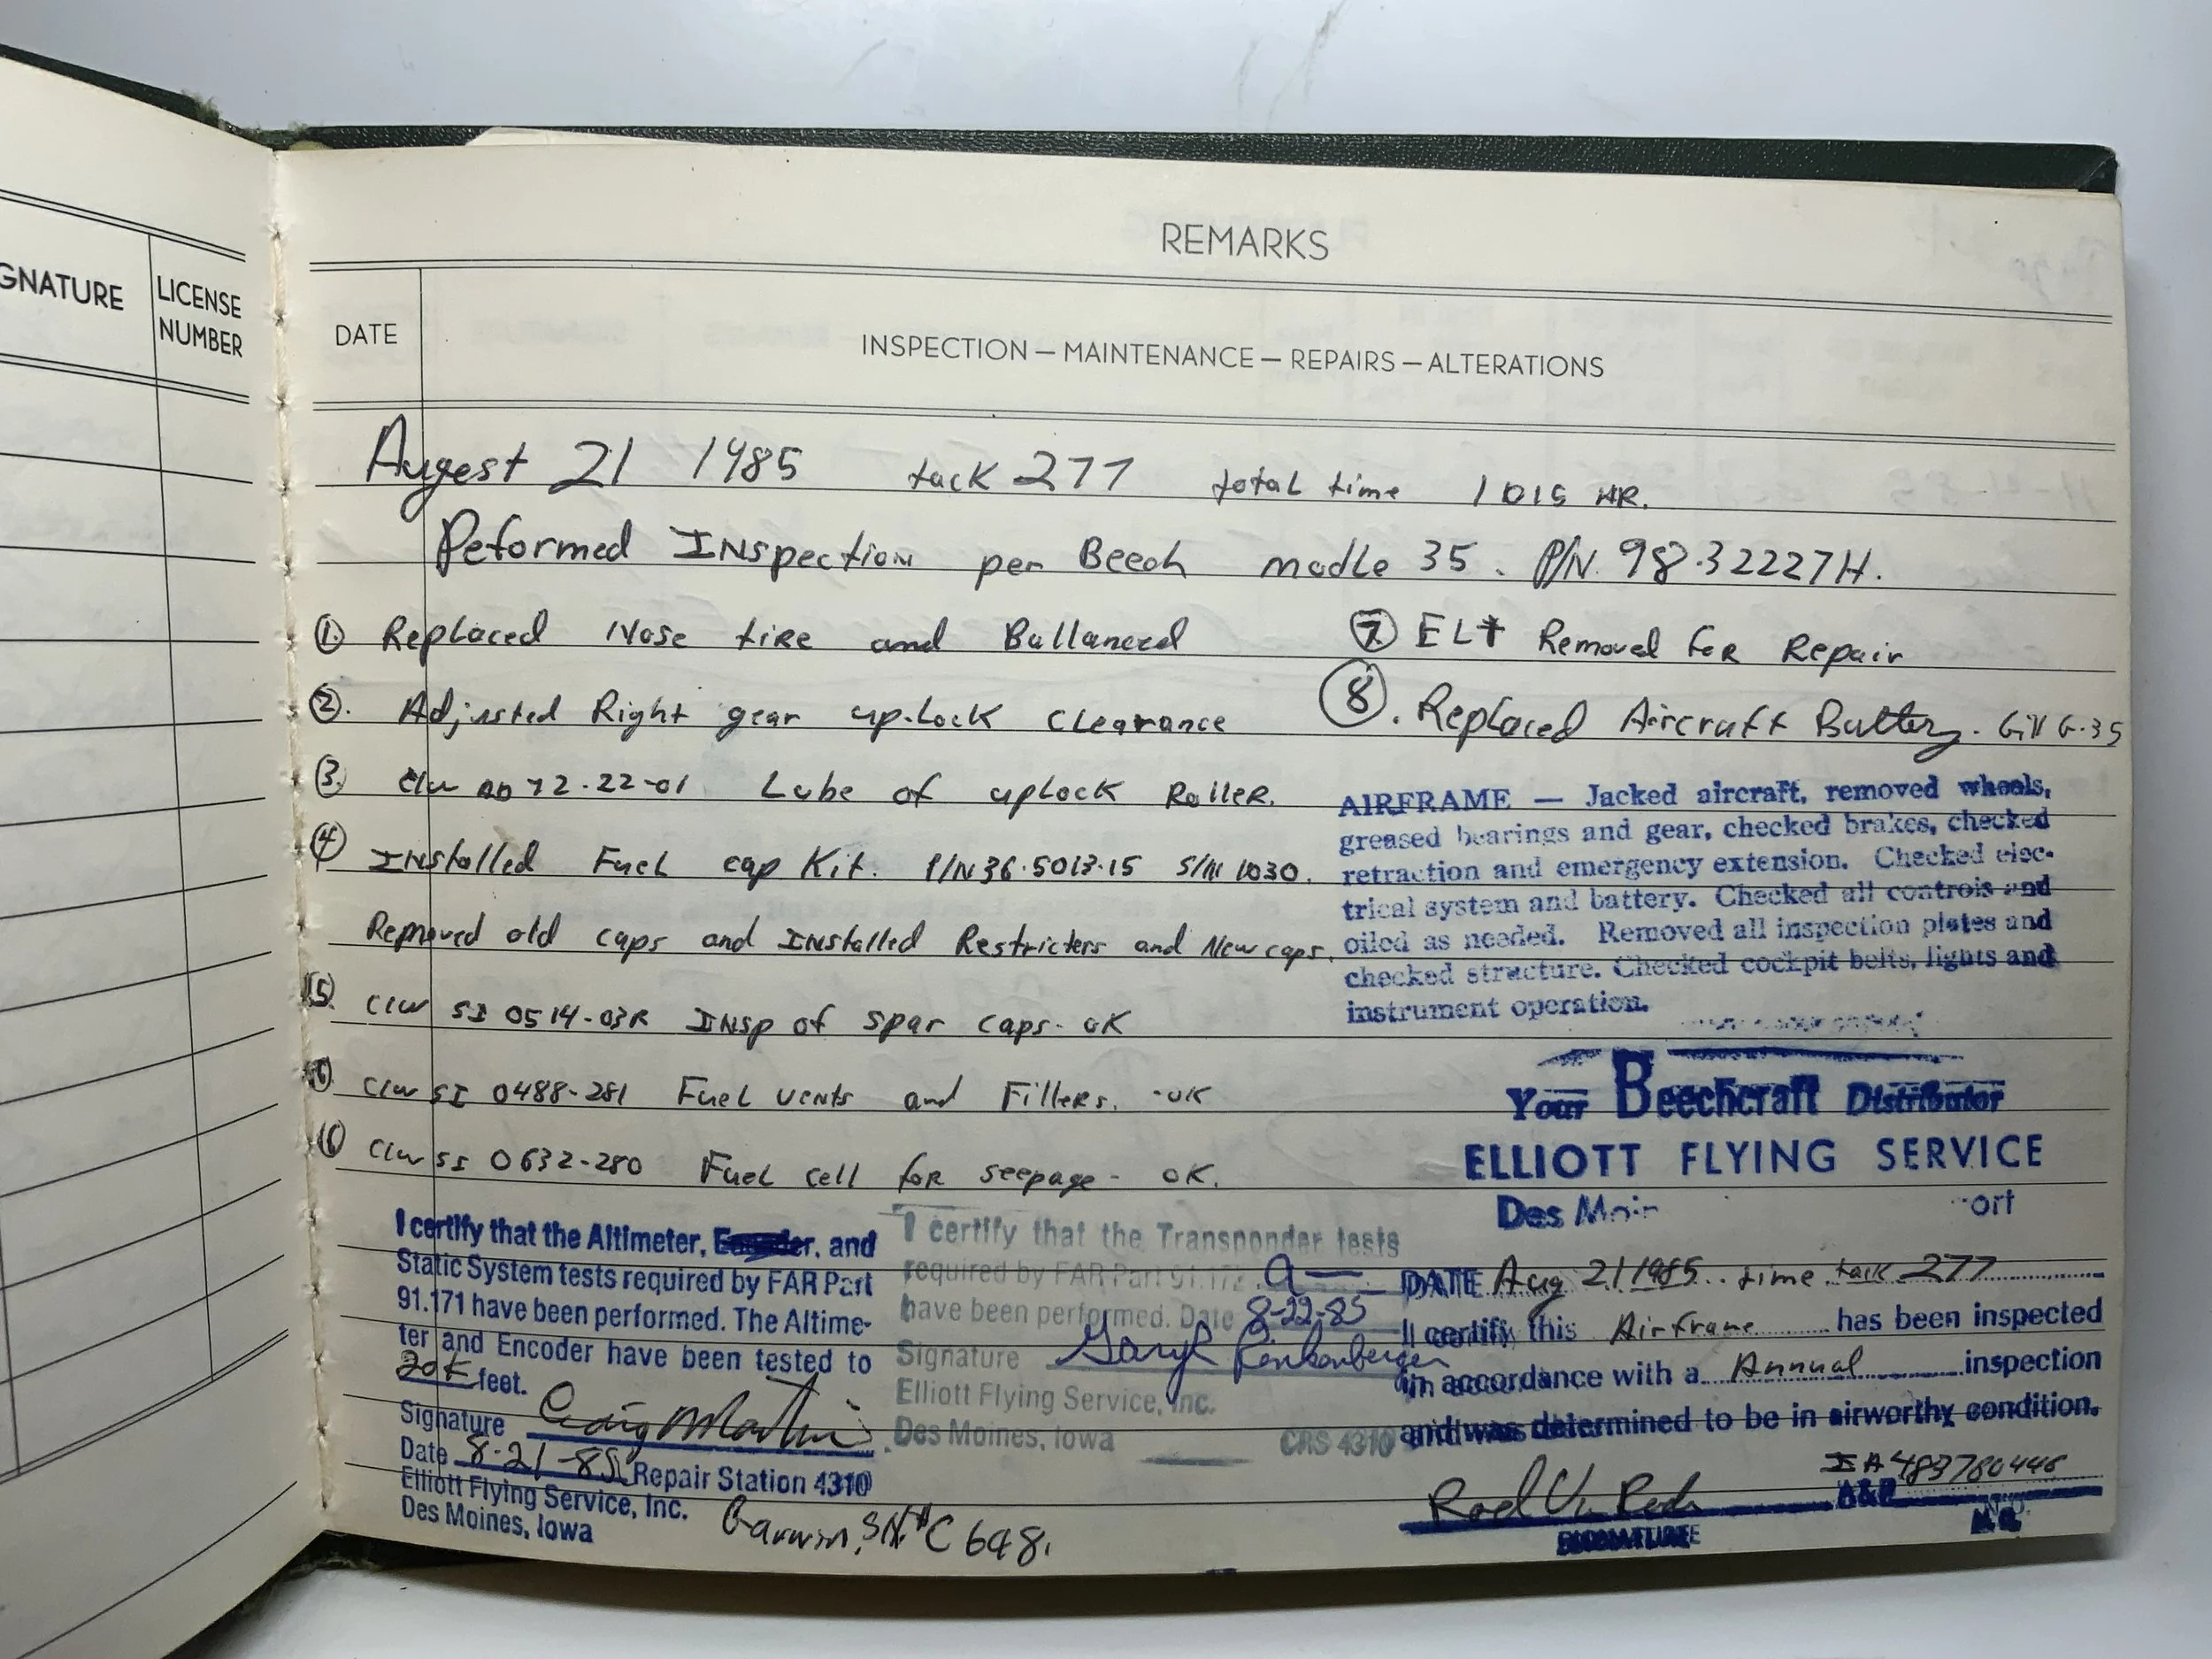 GNATURE
LICENSE
NUMBER
REMARKS
DATE
INSPECTION — MAINTENANCE — REPAIRS — ALTERATIONS
Augest 21 1985 tack 277 total time 1015 HR.
Peformed INspection per Beech modle 35. P/N. 98-32227H.
① Replaced Nose tiRe and Ballanced
②. Adjusted Right gear up-Lock Clearance
③. C/W AD 72-22-01 Lube of upLock RolleR.
④ INstalled Fuel cap Kit. P/N 36-5013-15 S/N 1030.
Removed old caps and INstalled Restricters and New caps.
⑤. C/W SI 0514-03R INsp of spar caps- oK
C/W SI 0488-281 Fuel vents and FilleRs. -oK
⑥ C/W SI 0632-280 Fuel cell foR seepage - OK.
⑦ ELT Removed FoR Repair
⑧. Replaced Aircraft Battery. Gill G-35
AIRFRAME — Jacked aircraft, removed wheels,
greased bearings and gear, checked brakes, checked
retraction and emergency extension. Checked elec-
trical system and battery. Checked all controls and
oiled as needed. Removed all inspection plates and
checked structure. Checked cockpit belts, lights and
instrument operation.
Your Beechcraft Distributor
ELLIOTT FLYING SERVICE
Des Moin ort
I certify that the Altimeter, Encoder, and
Static System tests required by FAR Part
91.171 have been performed. The Altime-
ter and Encoder have been tested to
20K feet.
Signature Craig Martin
Date 8-21-85 Repair Station 4310
Elliott Flying Service, Inc.
Des Moines, Iowa
Garwin, SN# C648.
I certify that the Transponder tests
required by FAR Part 91.172
have been performed. Date 8-22-85
Signature Gary
Elliott Flying Service, Inc.
Des Moines, Iowa CRS 4310
DATE Aug 21 1985 time tack 277
I certify this Airframe has been inspected
in accordance with a Annual inspection
and was determined to be in airworthy condition.
IA 483780446
A&P
SIGNATURE NO.